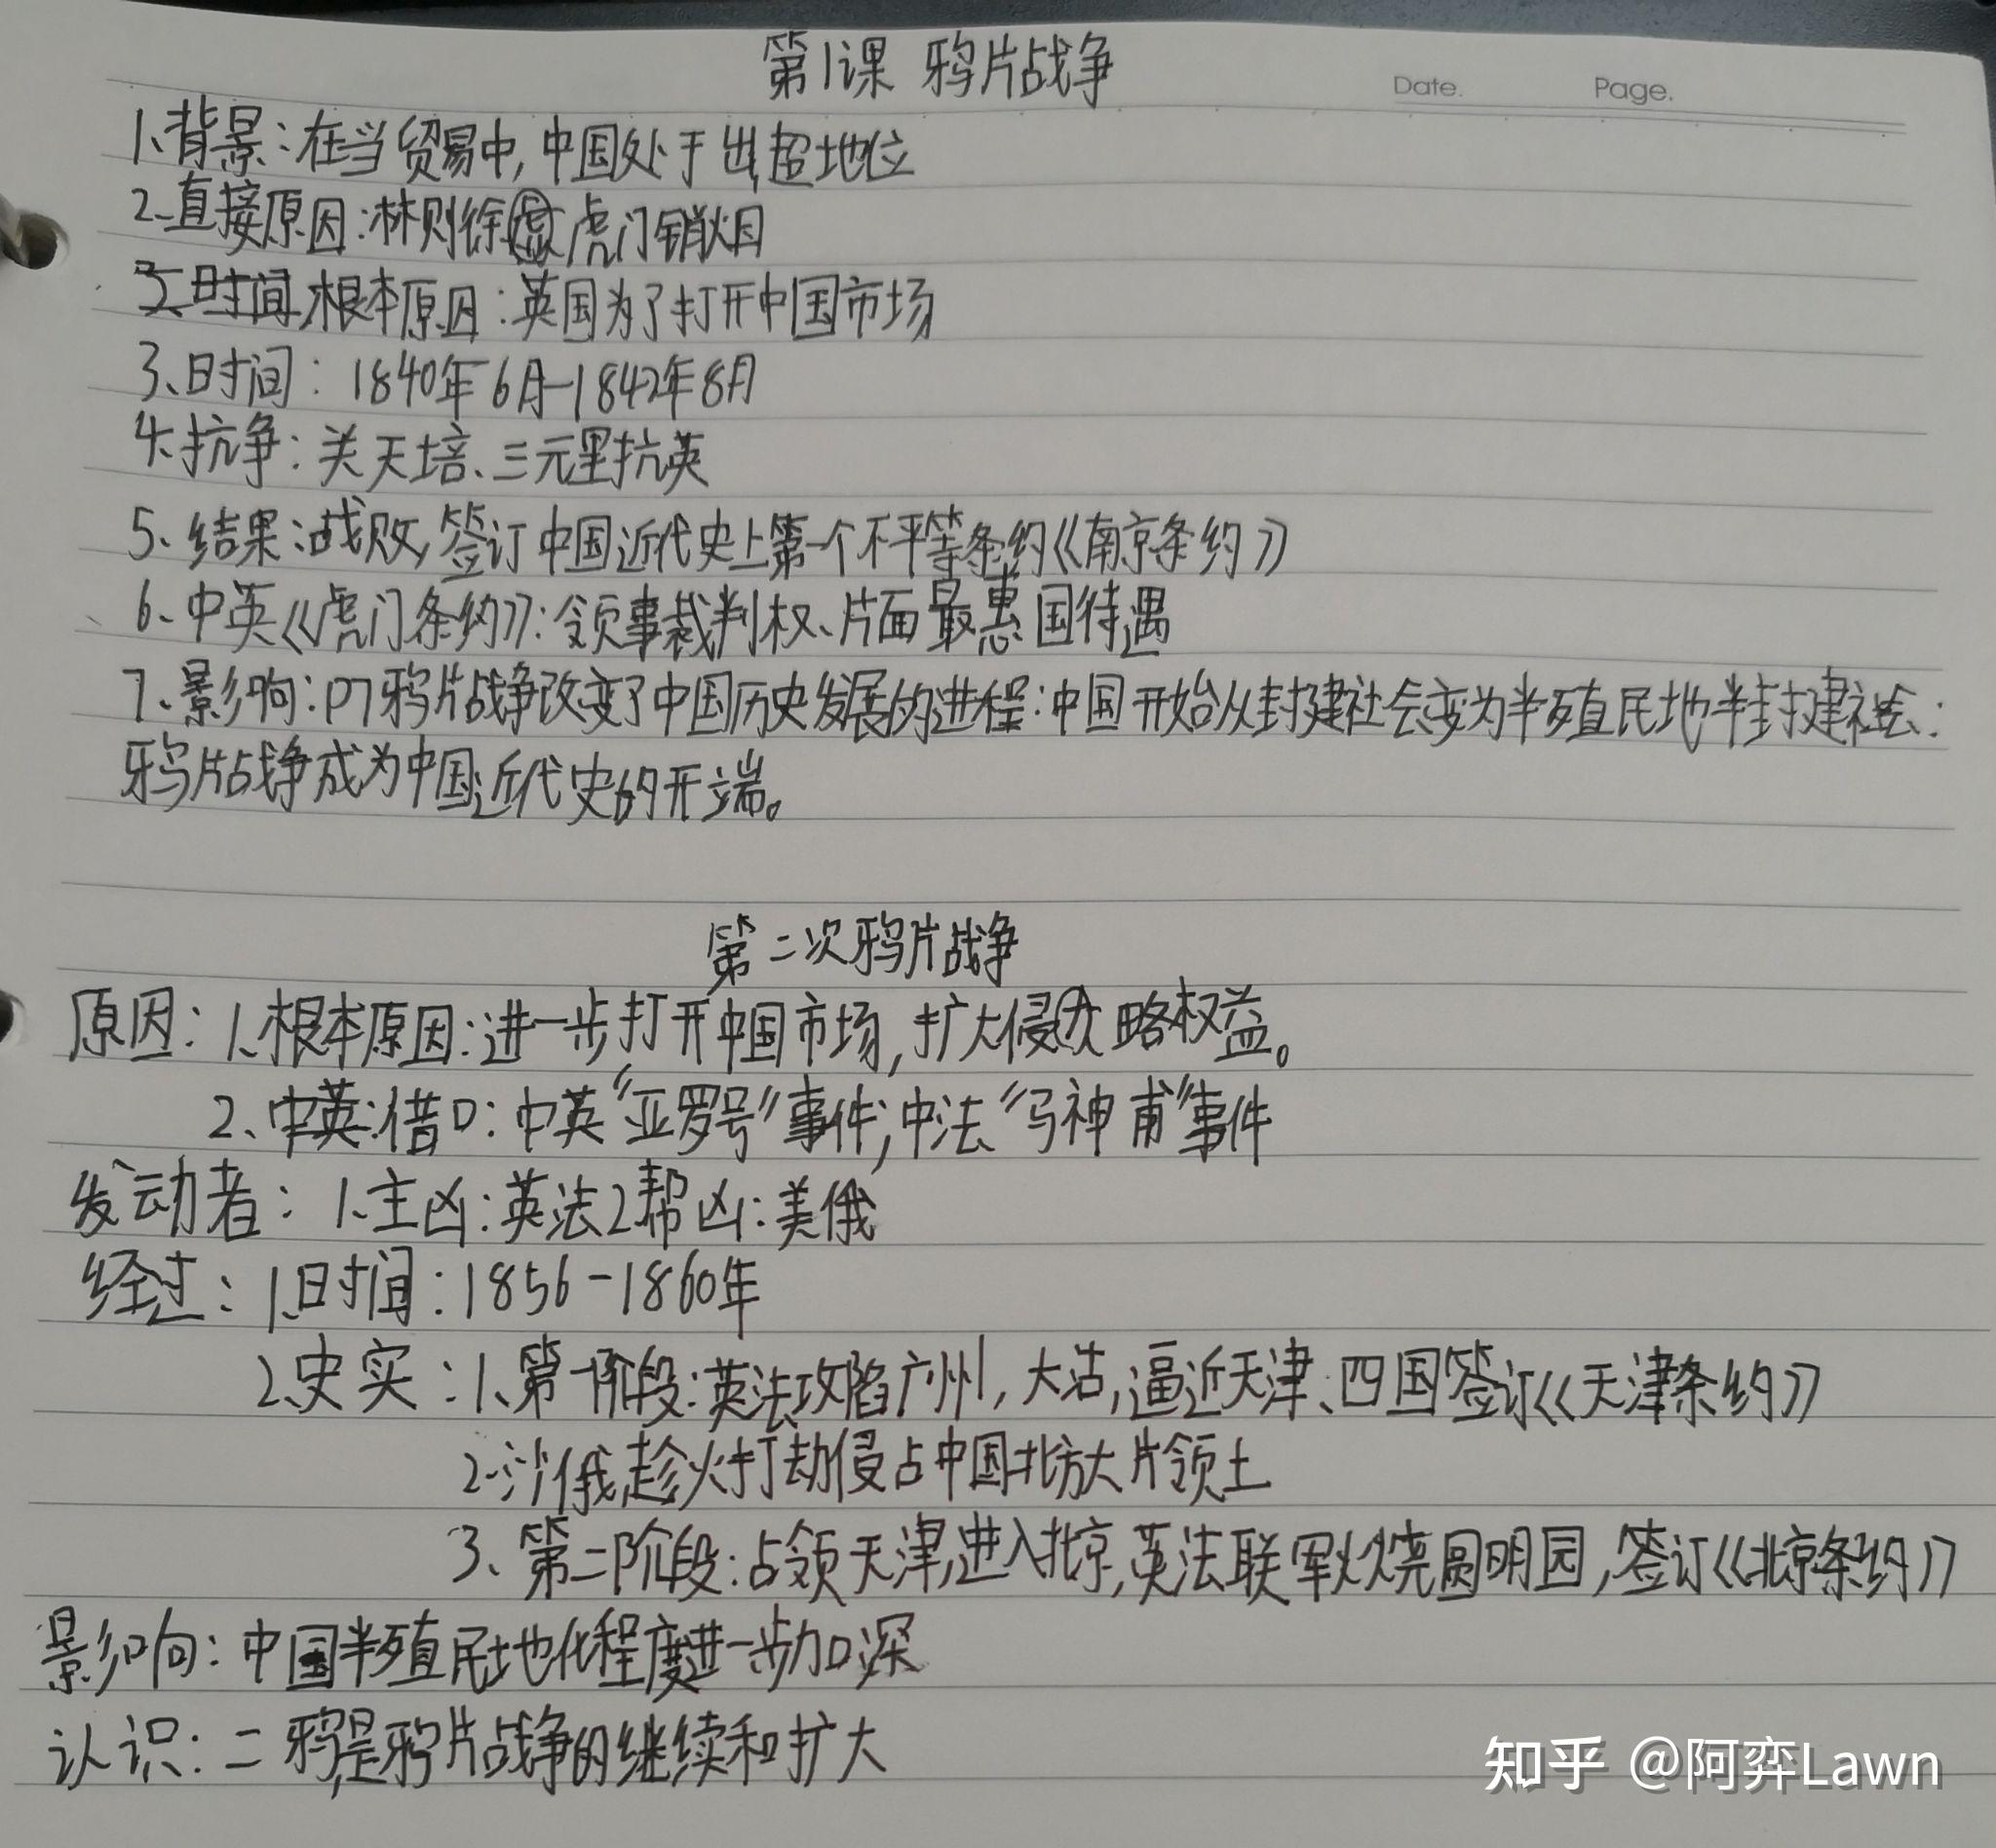 第1课 鸦片战争
Date. Page.
1、背景:在当贸易中,中国处于出超地位
2、直接原因:林则徐虎门销烟
根本原因:英国为了打开中国市场
3、时间:1840年6月-1842年8月
4、抗争:关天培、三元里抗英
5、结果:战败,签订中国近代史上第一个不平等条约《南京条约》
6、中英《虎门条约》:领事裁判权、片面最惠国待遇
7、影响:鸦片战争改变了中国历史发展的进程:中国开始从封建社会变为半殖民地半封建社会:
鸦片战争成为中国近代史的开端。
第二次鸦片战争
原因:1、根本原因:进一步打开中国市场,扩大侵略权益。
2、借口:中英"亚罗号"事件;中法"马神甫"事件
发动者:1、主凶:英法2帮凶:美俄
经过:1、时间:1856-1860年
2、史实:1、第一阶段:英法攻陷广州,大沽,逼近天津、四国签订《天津条约》
2、沙俄趁火打劫侵占中国北方大片领土
3、第二阶段:占领天津,进入北京,英法联军火烧圆明园,签订《北京条约》
影响:中国半殖民地化程度进一步加深
认识:二鸦是鸦片战争的继续和扩大
知乎 @阿弈Lawn